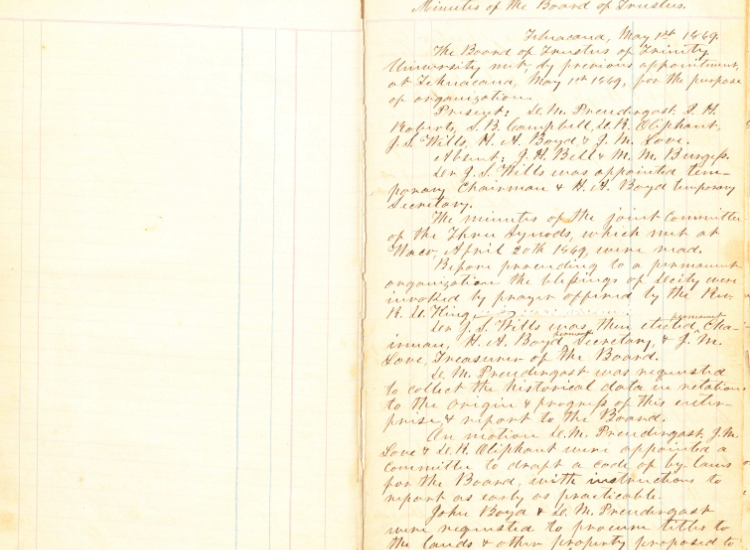 Minutes of the Board of Trustees.
Tehuacana, May 1st 1869.
The Board of Trustees of Trinity
University met, by previous appointment,
at Tehuacana, May 1st 1869, for the purpose
of organization.
Present: D. M. Prendergast, S. H.
Roberts, S. B. Campbell, D. R. Oliphant,
J. S. Wills, H. A. Boyd & J. M. Love.
Absent; J. H. Bell & M. M. Burgess.
J. S. Wills was appointed tem-
porary Chairman & H. A. Boyd temporary
Secretary.
The minutes of the joint Committee
of the Three Synods, which met at
Waco, April 20th 1869, were read.
Before proceeding to a permanent
organization the blessings of Deity were
invoked by prayer offered by the Rev.
R. D. King.
J. S. Wills was then elected permanent Cha-
irman, H. A. Boyd, permanent Secretary, & J. M.
Love, Treasurer of the Board.
D. M. Prendergast was requested
to collect the historical data in relation
to the origin & progress of this enter-
prise, & report to the Board.
On motion D. M. Prendergast, J. M.
Love & D. R. Oliphant were appointed a
committee to draft a code of by-laws
for the Board, with instructions to
report as early as practicable.
John Boyd & D. M. Prendergast
were requested to procure titles to
the lands & other property proposed to